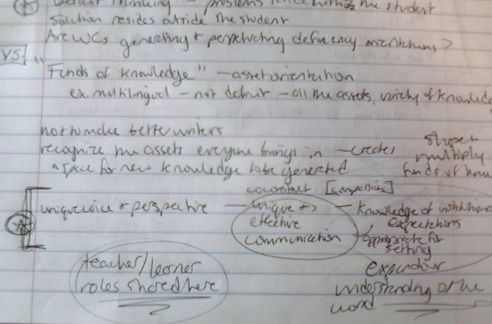 Deficit Thinking - problems reside within the student
solution resides outside the student
Are WCs generating + perpetuating deficiency orientations?
VS "Funds of knowledge" - asset orientation
ex. multilingual - not deficit - all the assets, variety of knowledge
not to make better writers
recognize the assets everyone brings in - creates
a space for new knowledge to be generated
shape + multiply funds of
coconstruct
unique voice + perspective - unique + effective communication
- knowledge of
expectations
appropriate for setting
teacher/learner
roles shared here
expand our
understanding of the
word